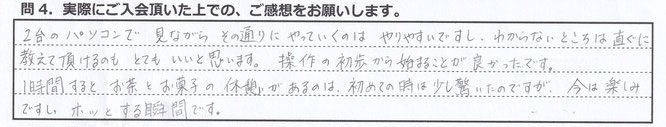 問４．実際にご入会頂いた上での、ご感想をお願いします。
2台のパソコンで 見ながら その通りに やっていくのは やりやすいですし、わからないところは直ぐに
教えて頂けるのも とてもいいと思います。 操作の初歩から始まることが良かったです。
1時間すると お茶とお菓子の 休憩が あるのは、初めての時は少し驚いたのですが、今は楽しみ
ですし ホッとする瞬間です。